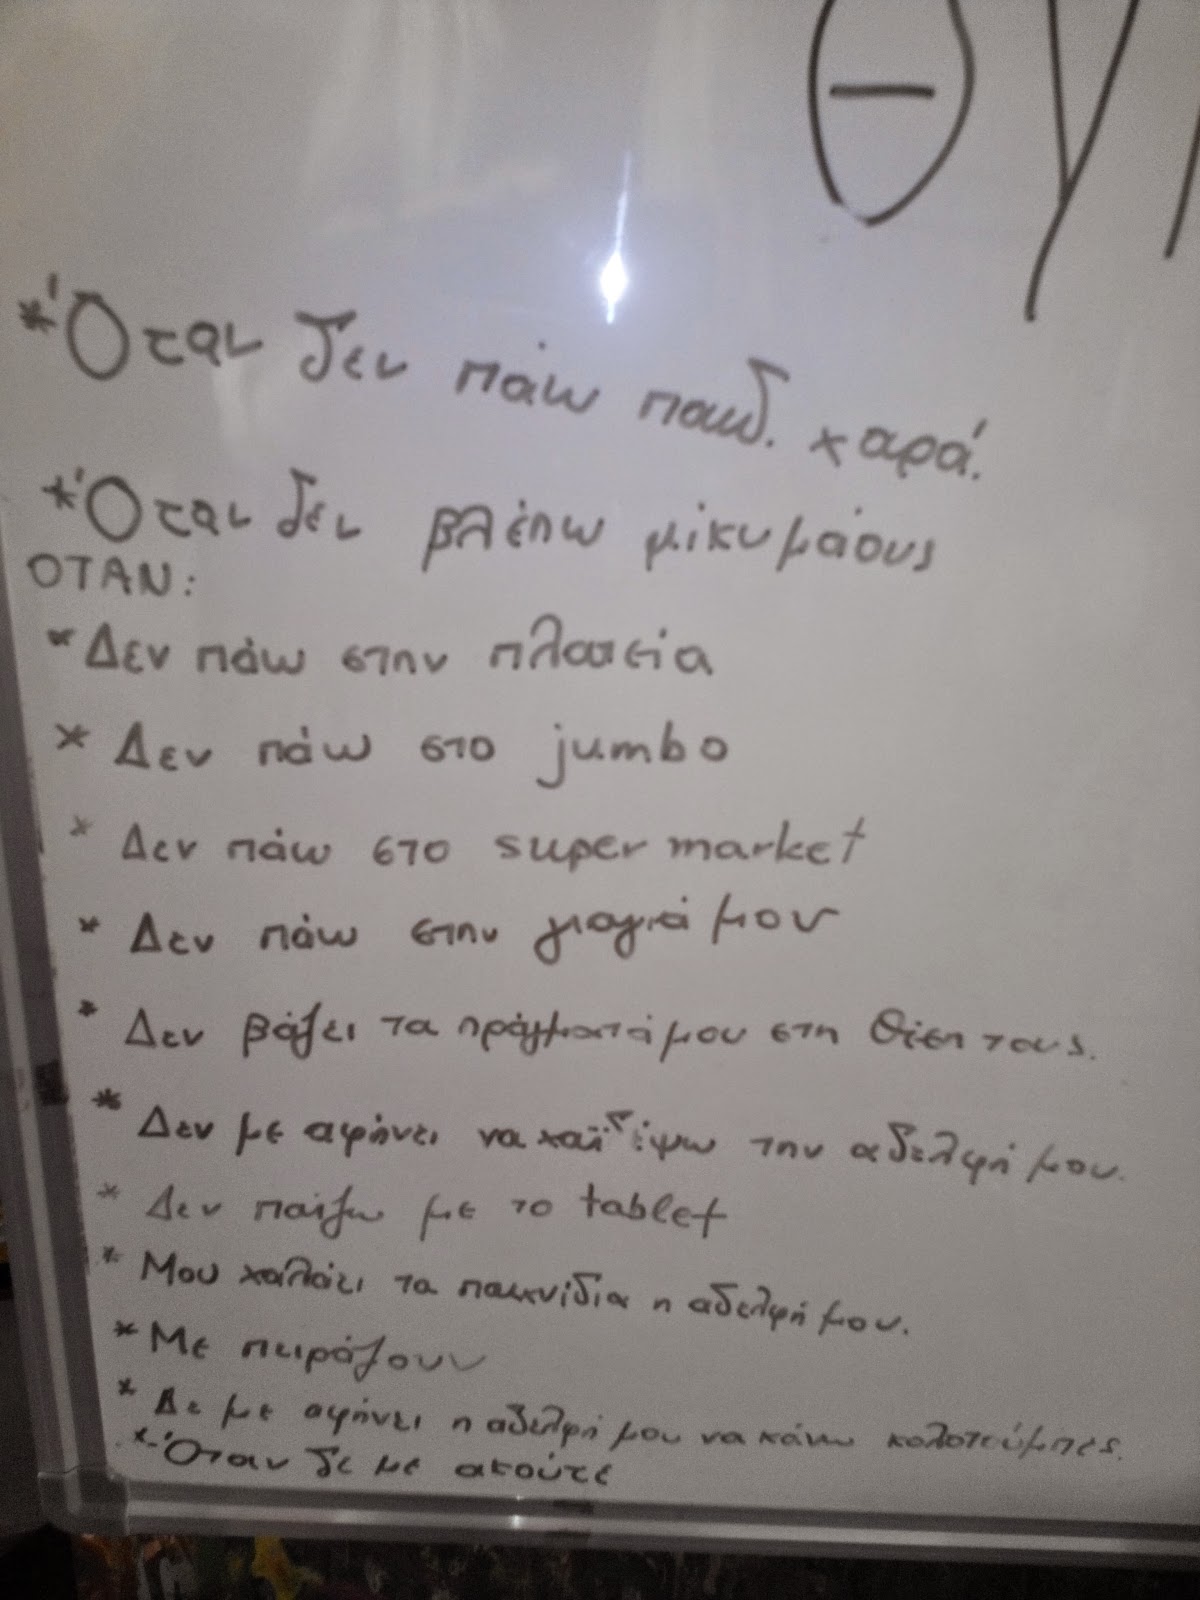 Θγ
* Όταν δεν πάω παιδ. χαρά.
* Όταν δεν βλέπω μίκυμάους
ΟΤΑΝ:
* Δεν πάω στην πλατεία
* Δεν πάω στο jumbo
* Δεν πάω στο super market
* Δεν πάω στην γιαγιά μου
* Δεν βάζει τα πράγματά μου στη θέση τους.
* Δεν με αφήνει να χαϊδέψω την αδελφή μου.
* Δεν παίζω με το tablet
* Μου χαλάει τα παιχνίδια η αδελφή μου.
* Με πειράζουν
* Δε με αφήνει η αδελφή μου να κάνω κολοτούμπες.
* Όταν δε με ακούτε